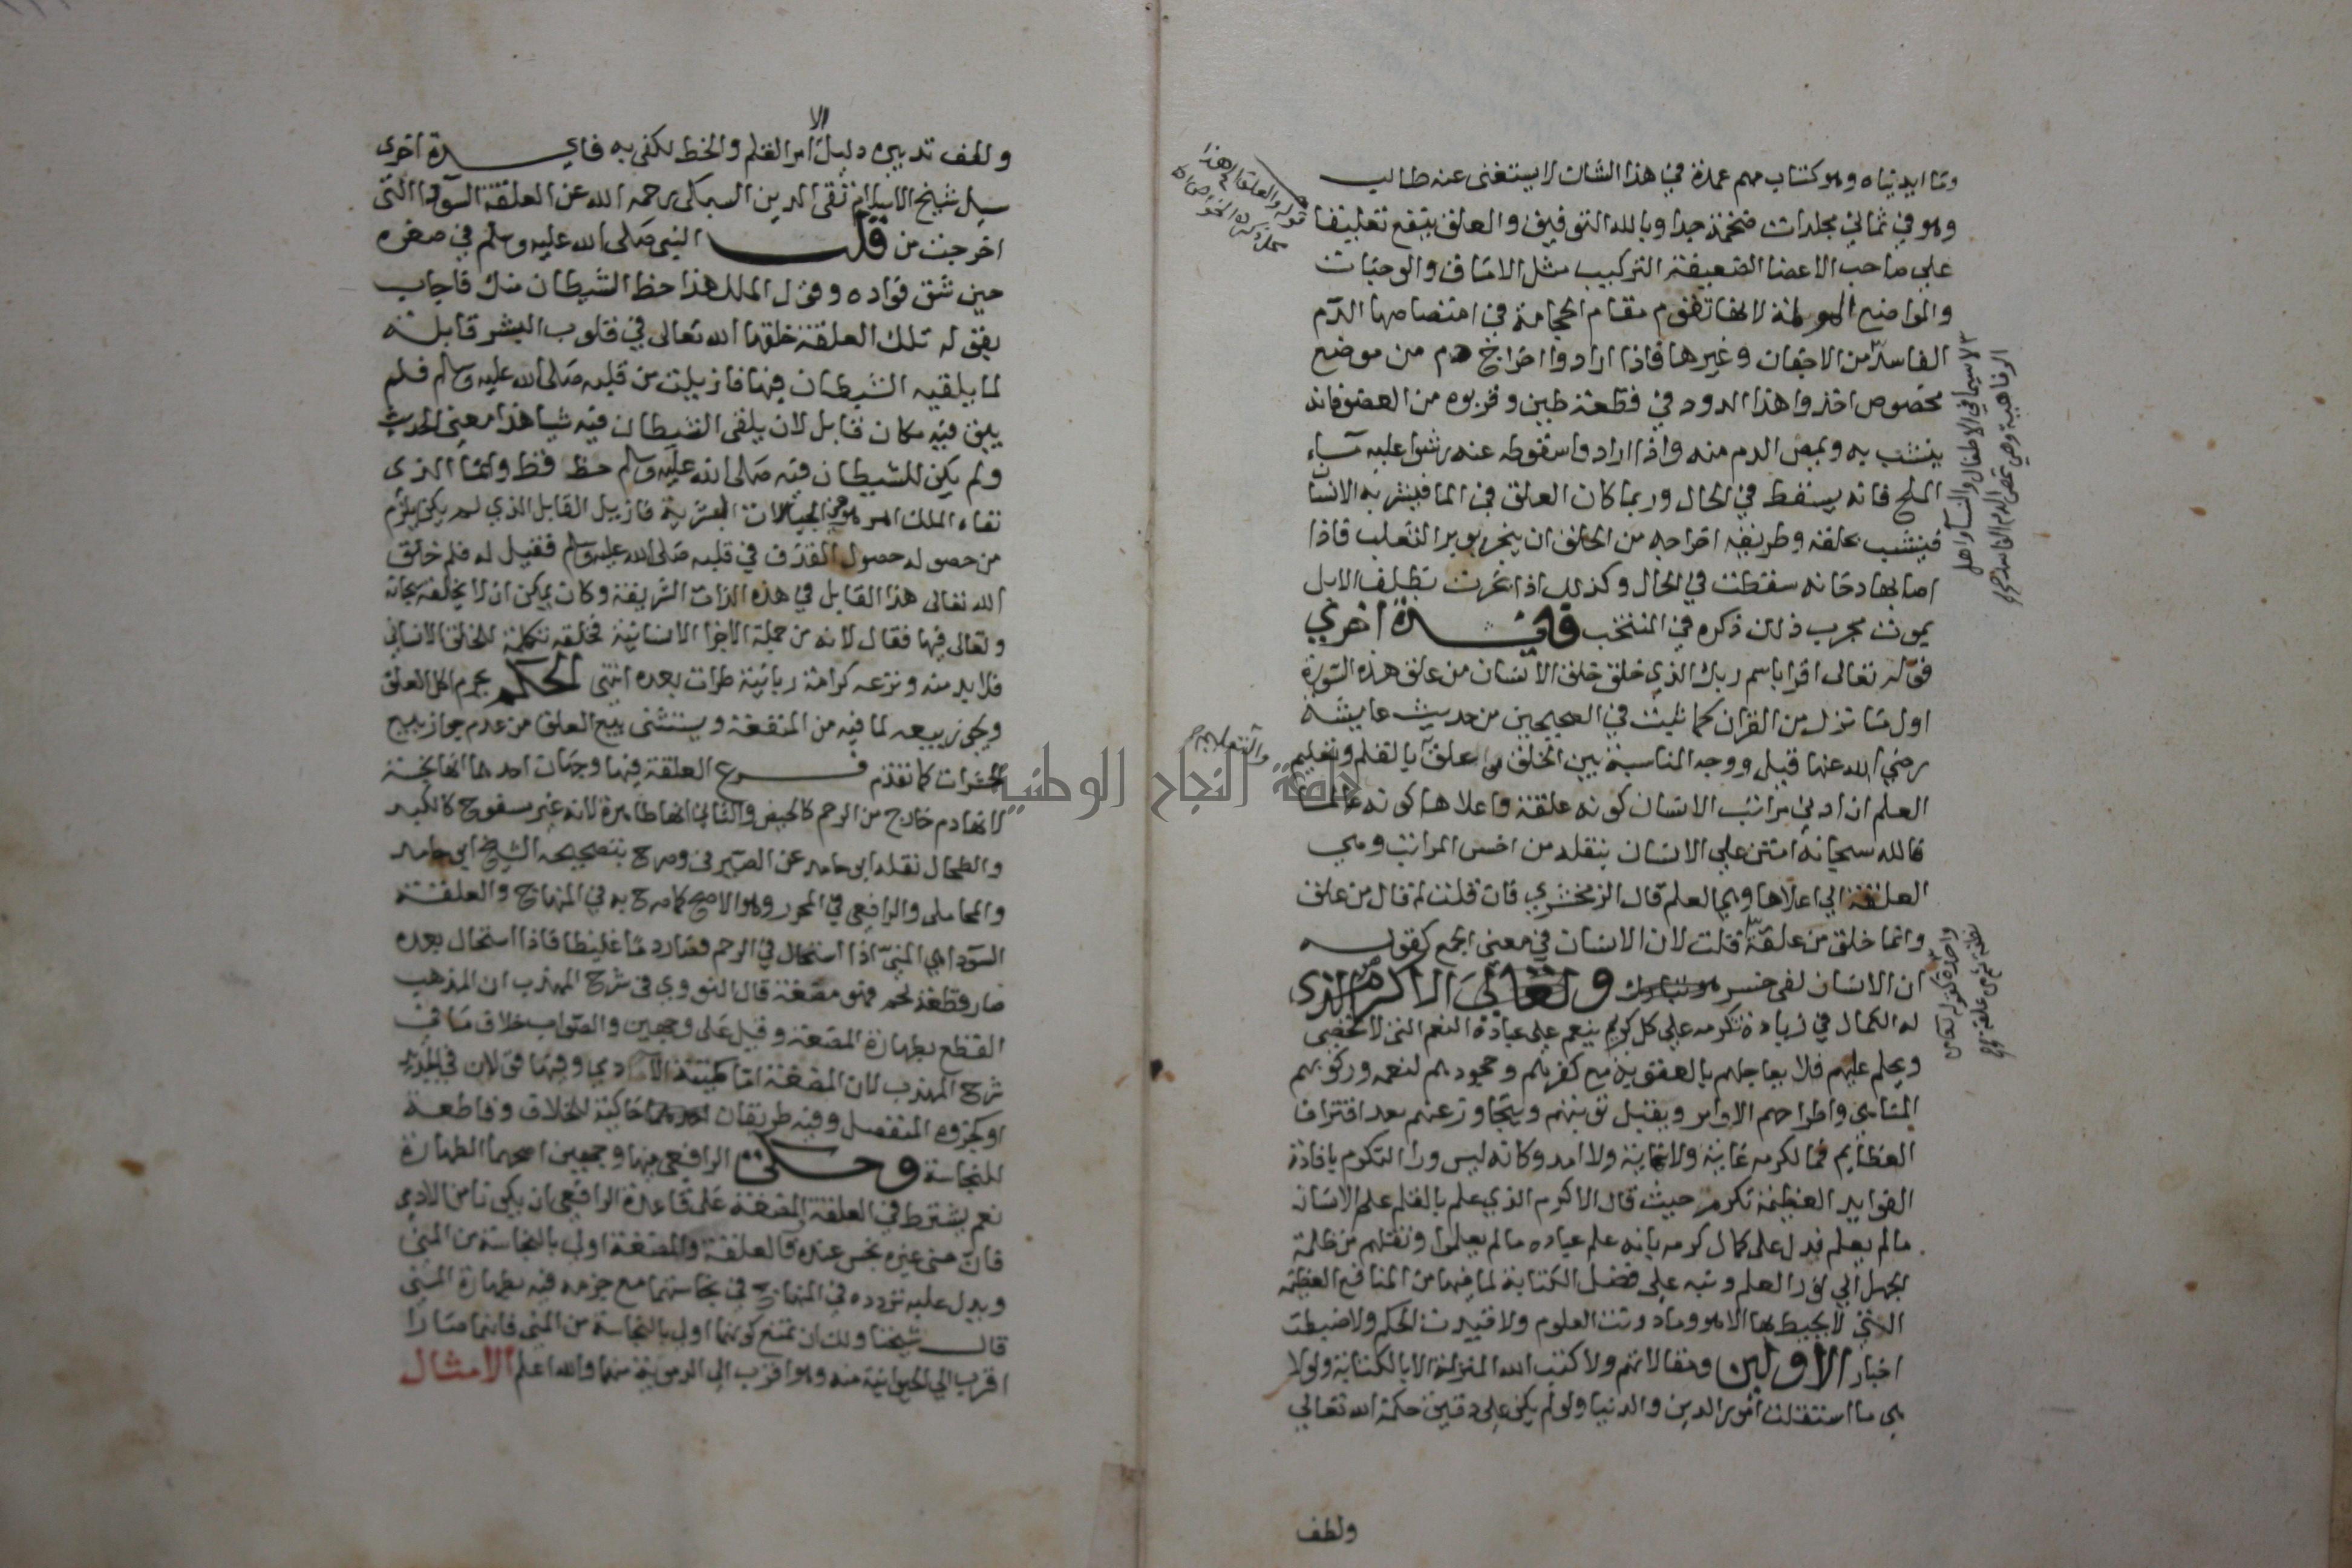 وما ابديناه وهو كتاب مهم عمدة في هذا الشان لا يستغنى عنه طالب
وهو في ثماني مجلدات ضخمة جدا وبالله التوفيق والعلق ينفع تعليقها
على صاحب الاعضا الضعيفة التركيب مثل الاماق والوجنات
والمواضع لانها تقوم مقام الحجامة في امتصاصها الدم
الفاسد من الاجفان وغيرها فاذا ارادوا اخراج دم من موضع
مخصوص اخذوا هذا الدود في قطعة طين وقربوه من العضو فانه
ينشب به ويمص الدم منه واذا ارادوا سقوطه عنه رشوا عليه ماء
الملح فانه يسقط في الحال وربما كان العلق في الما فيشربه الانسان
فينشب بحلقه وطريقه اخراجه من الحلق ان يبخر بوبر الثعلب فاذا
اصابها دخانه سقطت في الحال وكذلك اذا بخرت بظلف الابل
يموت مجرب ذلك ذكره في المنتخب فائدة اخري
قوله تعالى اقرا باسم ربك الذي خلق خلق الانسان من علق هذه السورة
اول ما نزل من القران كما ثبت في الصحيحين من حديث عايشة
رضي الله عنها قيل ووجه المناسبة بين الخلق من علق بالقلم وتعليم
العلم ان ادني مراتب الانسان كونه علقة واعلاها كونه عالما
فالله سبحانه امتن على الانسان بنقله من اخس المراتب وهي
العلقة الي اعلاها وهي العلم قال الزمخشري فان قلت لم قال من علق
وانما خلق من علقة قلت لان الانسان في معنى الجمع كقوله
ان الانسان لفي خسر وتعالى الاكرم الذي
له الكمال في زيادة تكرمه علي كل كريم ينعم علي عباده النعم التي لا تحصى
ويحلم عليهم فلا يعاجلهم بالعقوبة مع كفرهم وجحودهم لنعمه وركوبهم
المناهي واطراحهم الاوامر ويقبل توبتهم ويتجاوز عنهم بعد اقتراف
العظايم فما لكرمه غاية ولا نهاية ولا امد وكانه ليس ورا التكرم بافادة
الفوايد العظيمة تكرم حيث قال الاكرم الذي علم بالقلم علم الانسان
ما لم يعلم فدل على كمال كرمه بانه علم عباده ما لم يعلموا ونقلهم من ظلمة
الجهل الي نور العلم ونبه علي فضل الكتابة لما فيها من المنافع العظيمة
التي لا يحيط بها الا هو وما دونت العلوم ولا قيدت الحكم ولا ضبطت
اخبار الاولين ومقالاتهم ولا كتب الله المنزلة الا بالكتابة ولولا
هي ما استقلت امور الدين والدنيا ولو لم يكن على دقيق حكمة الله تعالي
ولطف
قوله والعلق الى هنا
لا سيما في الاطفال والنسا واهل
الرفاهية وهي تمص الدم الفاسد صح
والتعليم صح
واحدة كقوله تعالى
نطفة ثم من علقة صح
ولطف تدبيره دليل الا امر القلم والخط لكفى به فايدة اخرى
سيل شيخ الاسلام تقي الدين السبكي رحمه الله عن العلقة السودا التي
اخرجت من قلب النبي صلى الله عليه وسلم في صغره
حين شق فؤاده وقول الملك هذا حظ الشيطان منك فاجاب
بقوله تلك العلقة خلقها الله تعالى في قلوب البشر قابلة
لما يلقيه الشيطان فيها فازيلت من قلبه صلى الله عليه وسلم فلم
يبق فيه مكان قابل لان يلقى الشيطان فيه شيا هذا معنى الحديث
ولم يكن للشيطان فيه صلى الله عليه وسلم حظ قط وانما الذى
نفاه الملك امر هو في الجبلات البشرية فازيل القابل الذي لم يكن يلزم
من حصوله حصول القذف في قلبه صلى الله عليه وسلم فقيل له فلم خلق
الله تعالى هذا القابل في هذه الذات الشريفة وكان يمكن ان لا يخلقه سبحانه
وتعالى فيها فقال لانه من جملة الاجزا الانسانية فخلقه تكملة للخلق الانساني
فلا بد منه ونزعه كرامة ربانية طرات بعده انتهى الحكم يحرم اكل العلق
ويجوز بيعه لما فيه من المنفعة ويستثنى بيع العلق من عدم جواز بيع
الحشرات كما تقدم فرع العلقة فيها وجهان احدهما انها نجسة
لانها دم خارج من الرحم كالحيض والثاني انها طاهرة لانه غير مسفوح كالكبد
والطحال نقله ابو حامد عن الصيرفي وصرح بتصحيحه الشيخ ابو حامد
والمحاملى والرافعي في المحرر وهو الاصح كما صرح به في المنهاج والعلقة
السودا هي المني اذا استحال في الرحم فصار دما غليظا فاذا استحال بعده
صار قطعة لحم فهو مضغة قال النووي في شرح المهذب ان المذهب
القطع بطهارة المضغة وقيل على وجهين والصواب خلاف ما في
شرح المهذب لان المضغة اما كميتة الادمي وفيها قولان في الجديد
او كجزوه المنفصل وفيه طريقان حاكية للخلاف وقاطعة
للنجاسة وحكى الرافعي فيها وجهين اصحهما الطهارة
نعم يشترط في العلقة المضغة على قاعدة الرافعي ان يكونا من الادمي
فان مني غيره نجس عنده فالعلقة والمضغة اولى بالنجاسة من المني
ويدل عليه تردده في المنهاج في نجاستهما مع جزمه فيه بطهارة المني
قال شيخنا ولك ان تمنع كونهما اولى بالنجاسة من المني فانهما صارا
اقرب الي الحيوانية منه وهو اقرب الى الدموية منهما والله اعلم الامثال
جامعة النجاح الوطنية